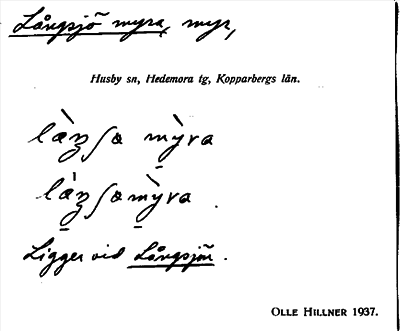 Långsjö myra, myr,
Husby sn, Hedemora tg, Kopparbergs län.
làŋʃa mỳra
làŋʃamỳra .
Ligger vid Långsjön.
OLLE HILLNER 1937.